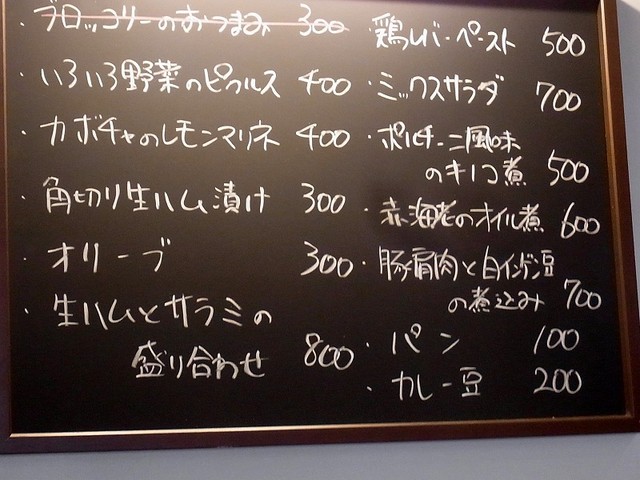 ・ブロッコリーのおつまみ 300
・いろいろ野菜のピクルス 400
・カボチャのレモンマリネ 400
・角切り生ハム漬け 300
・オリーブ 300
・生ハムとサラミの
盛り合わせ 800
鶏レバーペースト 500
・ミックスサラダ 700
・ポルチーニ風味
のキノコ煮 500
・赤海老のオイル煮 600
・豚肩肉と白インゲン豆
の煮込み 700
・パン 100
・カレー豆 200